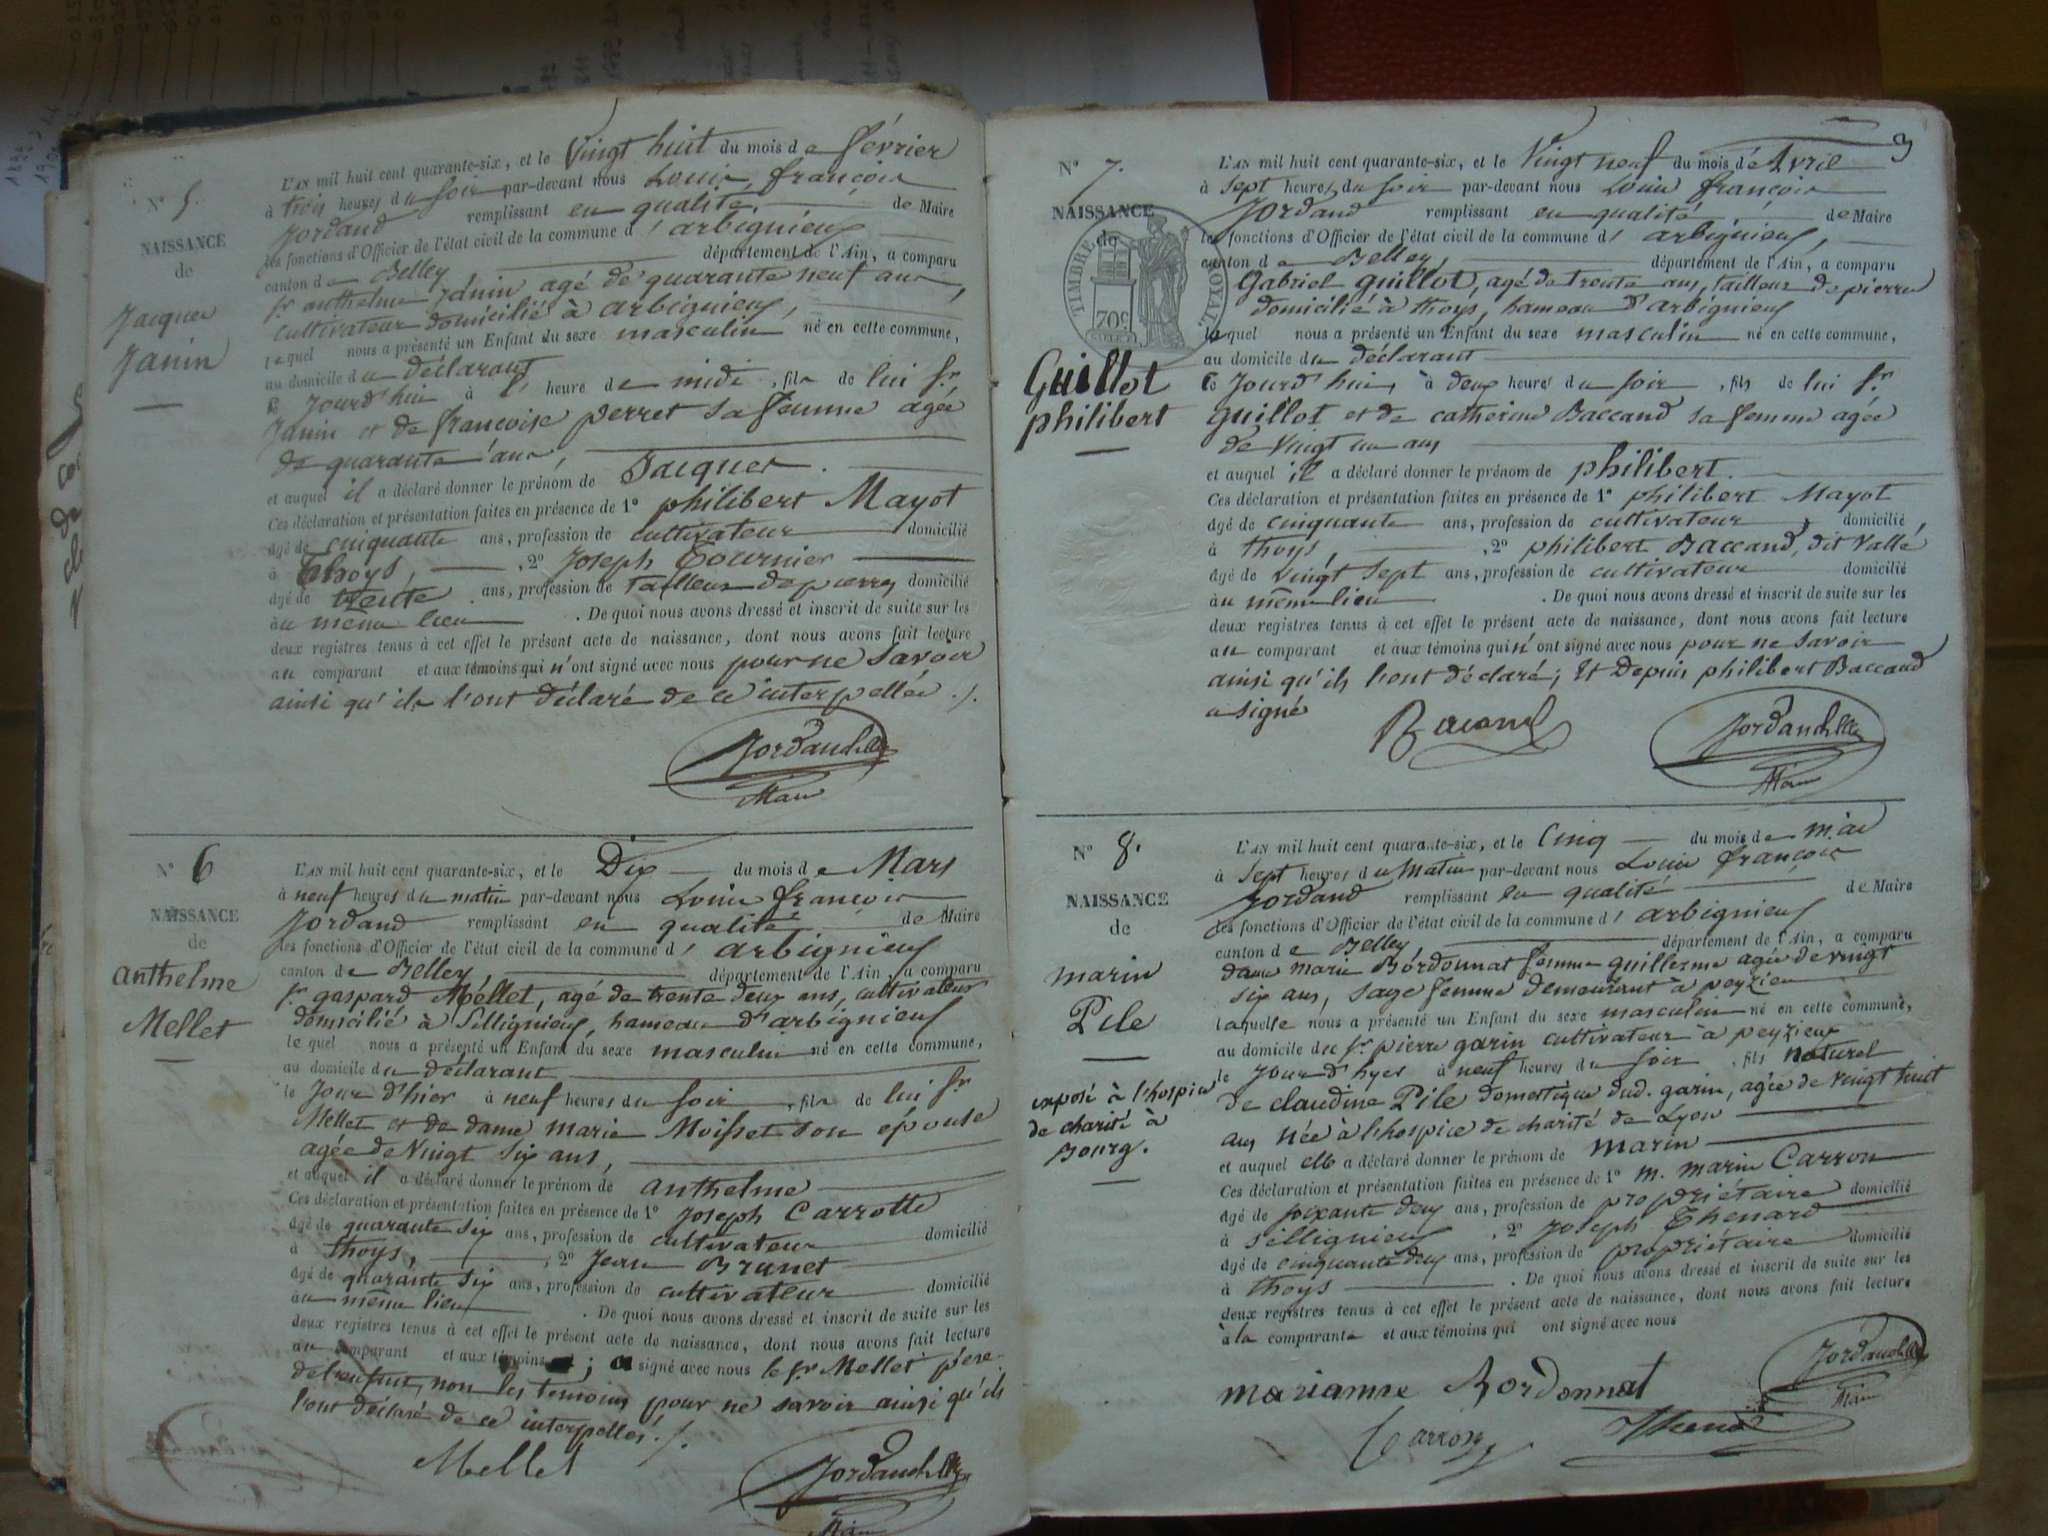 N° 5.
NAISSANCE
de
Jacques
Janin
L'AN mil huit cent quarante-six, et le Vingt huit du mois de février
à trois heures du soir par-devant nous Louis françois
Jordand remplissant en qualité de Maire
les fonctions d'Officier de l'état civil de la commune d'arbignieux
canton de Belley département de l'Ain, a comparu
sr anthelme Janin agé de quarante neuf ans,
cultivateur domicilié à arbignieux,
lequel nous a présenté un Enfant du sexe masculin né en cette commune,
au domicile du déclarant
ce jourd'hui à l' heure de midi, fils de lui sr
Janin et de françoise perret sa femme agée
de quarante ans,
et auquel il a déclaré donner le prénom de Jacques.
Ces déclaration et présentation faites en présence de 1° philibert Mayot
âgé de cinquante ans, profession de cultivateur domicilié
à thoys, 2° Joseph Tournier
âgé de trente ans, profession de tailleur de pierres domicilié
au même lieu. De quoi nous avons dressé et inscrit de suite sur les
deux registres tenus à cet effet le présent acte de naissance, dont nous avons fait lecture
au comparant et aux témoins qui n'ont signé avec nous pour ne savoir
ainsi qu'ils l'ont déclaré de ce interpellés ./.
Jordand
Maire
N° 6
NAISSANCE
de
anthelme
Mellet
L'AN mil huit cent quarante-six, et le Dix du mois de Mars
à neuf heures du matin par-devant nous Louis françois
Jordand remplissant en qualité de Maire
les fonctions d'Officier de l'état civil de la commune d'arbignieux
canton de Belley, département de l'Ain, a comparu
sr gaspard Mellet, agé de trente deux ans, cultivateur
domicilié à Sillignieux, hameau d'arbignieux
lequel nous a présenté un Enfant du sexe masculin né en cette commune,
au domicile du déclarant
le Jour d'hier à neuf heures du soir, fils de lui sr
Mellet et de dame marie Moisset son épouse
agée de Vingt six ans,
et auquel il a déclaré donner le prénom de anthelme
Ces déclaration et présentation faites en présence de 1° Joseph Carrotte
âgé de quarante six ans, profession de cultivateur domicilié
à thoys, 2° Jean Brunet
âgé de quarante six ans, profession de cultivateur domicilié
au même lieu. De quoi nous avons dressé et inscrit de suite sur les
deux registres tenus à cet effet le présent acte de naissance, dont nous avons fait lecture
au comparant et aux témoins ; a signé avec nous le sr Mellet père
de l'enfant, non les temoins pour ne savoir ainsi qu'ils
l'ont déclaré de ce interpellés ./.
Mellet
Jordand
Maire
3
N° 7.
NAISSANCE
de
TIMBRE ROYAL
70c
Guillot
philibert
L'AN mil huit cent quarante-six, et le Vingt neuf du mois d'Avril
à sept heures du soir par-devant nous Louis françois
Jordand remplissant en qualité de Maire
les fonctions d'Officier de l'état civil de la commune d'arbignieux,
canton de Belley, département de l'Ain, a comparu
Gabriel guillot, agé de trente ans, tailleur de pierre
domicilié à thoys, hameau d'arbignieux
lequel nous a présenté un Enfant du sexe masculin né en cette commune,
au domicile du déclarant
ce Jourd'hui, à deux heures du soir, fils de lui sr
guillot et de catherine Baccand sa femme agée
de Vingt un ans
et auquel il a déclaré donner le prénom de philibert.
Ces déclaration et présentation faites en présence de 1° philibert Mayot
âgé de cinquante ans, profession de cultivateur, domicilié
à thoys, 2° philibert Baccand, dit Vallé,
âgé de vingt sept ans, profession de cultivateur domicilié
au même lieu. De quoi nous avons dressé et inscrit de suite sur les
deux registres tenus à cet effet le présent acte de naissance, dont nous avons fait lecture
au comparant et aux témoins qui n'ont signé avec nous pour ne savoir
ainsi qu'ils l'ont déclaré; Et Depuis philibert Baccand
a signé
Bacand
Jordand
Maire
N° 8.
NAISSANCE
de
marin
Pile
exposé à l'hospice
de charité à
Bourg.
L'AN mil huit cent quarante-six, et le Cinq du mois de mai
à sept heures du matin par-devant nous Louis françois
Jordand remplissant en qualité de Maire
les fonctions d'Officier de l'état civil de la commune d'arbignieux
canton de Belley, département de l'Ain, a comparu
dame marie Bordonnat femme guillerme agée de vingt
six ans, sage femme demeurant à peyzieu
laquelle nous a présenté un Enfant du sexe masculin né en cette commune,
au domicile du sr pierre garin cultivateur à peyzieux
le jour d'hyer à neuf heures du soir, fils naturel
de claudine Pile domestique dud. garin, agée de vingt huit
ans née à l'hospice de charité de Lyon
et auquel elle a déclaré donner le prénom de marin
Ces déclaration et présentation faites en présence de 1° m. marin Carron
âgé de soixante deux ans, profession de propriétaire domicilié
à sillignieux, 2° Joseph Thenard
âgé de cinquante deux ans, profession de propriétaire domicilié
à thoys. De quoi nous avons dressé et inscrit de suite sur les
deux registres tenus à cet effet le présent acte de naissance, dont nous avons fait lecture
à la comparante et aux témoins qui ont signé avec nous
marianne Bordonnat
Jordand
Maire
Carron